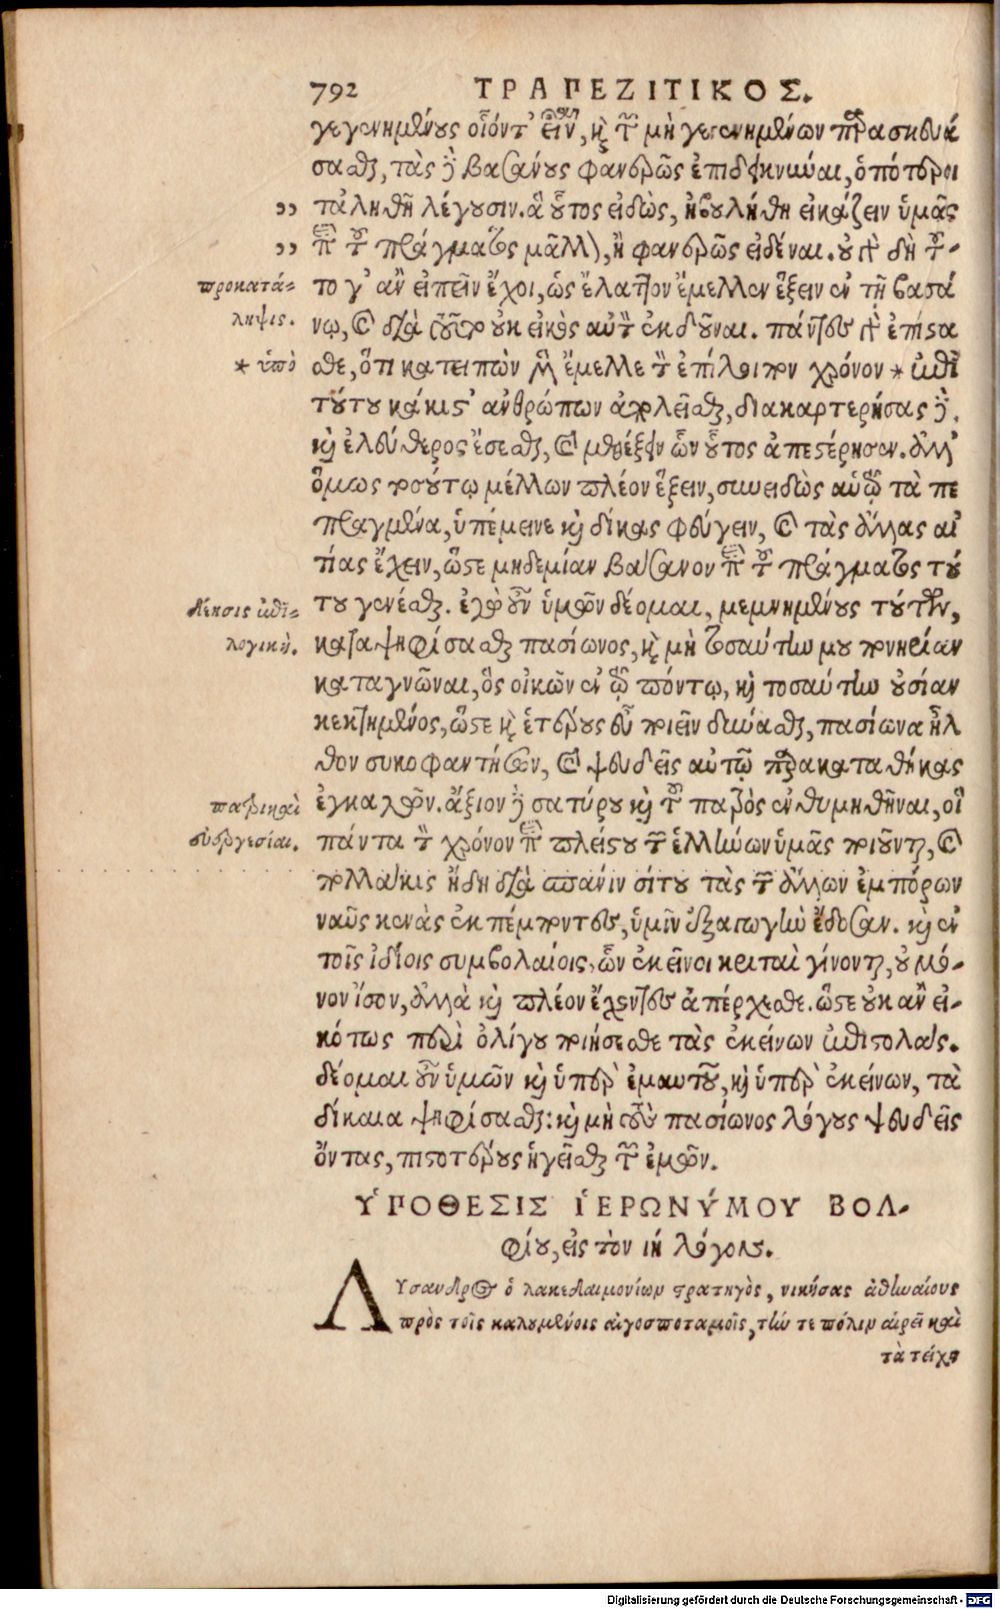 792 ΤΡΑΠΕΖΙΤΙΚΟΣ.
γεγενημένους οἷόντ' εἶναι, καὶ τῶν μὴ γεγενημένων παρασκευά
σασθαι, τὰς δὲ βασάνους φανερῶς ἐπιδεικνύναι, ὁπότεροι
,, τἀληθῆ λέγουσιν. ἃ οὗτος εἰδὼς, ἠβουλήθη εἰκάζειν ὑμᾶς
,, περὶ τοῦ πράγματος μᾶλλον, ἢ φανερῶς εἰδέναι. οὐ γὰρ δὴ τοῦ-
προκατά- το γ' ἂν εἰπεῖν ἔχοι, ὡς ἔλαττον ἔμελλεν ἕξειν ἐν τῇ βασά
ληψις. νῳ, καὶ διὰ τοῦτο οὐκ εἰκὸς αὐτὸν ἐκδοῦναι. πάντες γὰρ ἐπίστα
* ὑπὸ σθε, ὅτι κατειπὼν μὲν ἔμελλε τὸν ἐπίλοιπον χρόνον * ἐπὶ
τούτου κάκιστ' ἀνθρώπων ἀπολεῖσθαι, διακαρτερήσας δὲ.
καὶ ἐλεύθερος ἔσεσθαι, καὶ μεθέξειν ὧν οὗτος ἀπεστέρησεν. ἀλλ'
ὅμως τοσούτῳ μέλλων πλέον ἕξειν, συνειδὼς αὑτῷ τὰ πε
πραγμένα, ὑπέμεινε καὶ δίκας φεύγειν, καὶ τὰς ἄλλας αἰ
τίας ἔχειν, ὥστε μηδεμίαν βάσανον περὶ τοῦ πράγματος τού
δέησις ἐπι- του γενέσθαι. ἐγὼ οὖν ὑμῶν δέομαι, μεμνημένους τούτων,
λογική. καταψηφίσασθαι πασίωνος, καὶ μὴ τοσαύτην μου πονηρίαν
καταγνῶναι, ὃς οἰκῶν ἐν τῷ πόντῳ, καὶ τοσαύτην οὐσίαν
κεκτημένος, ὥστε καὶ ἑτέρους εὖ ποιεῖν δύνασθαι, πασίωνα ἦλ
θον συκοφαντήσων, καὶ ψευδεῖς αὐτῷ παρακαταθήκας
πατρικαὶ ἐγκαλῶν. ἄξιον δὲ σατύρου καὶ τοῦ πατρὸς ἐνθυμηθῆναι, οἳ
εὐεργεσίαι. πάντα τὸν χρόνον περὶ πλείστου τῶν ἑλλήνων ὑμᾶς ποιοῦνται, καὶ
πολλάκις ἤδη διὰ σπάνιν σίτου τὰς τῶν ἄλλων ἐμπόρων
ναῦς κενὰς ἐκπέμποντες, ὑμῖν ἐξαγωγὴν ἔδοσαν. καὶ ἐν
τοῖς ἰδίοις συμβολαίοις, ὧν ἐκεῖνοι κριταὶ γίνονται, οὐ μό-
νον ἴσον, ἀλλὰ καὶ πλέον ἔχοντες ἀπέρχεσθε. ὥστε οὐκ ἂν εἰ-
κότως περὶ ὀλίγου ποιήσεσθε τὰς ἐκείνων ἐπιστολάς.
δέομαι οὖν ὑμῶν καὶ ὑπὲρ ἐμαυτοῦ, καὶ ὑπὲρ ἐκείνων, τὰ
δίκαια ψηφίσασθαι: καὶ μὴ τοὺς πασίωνος λόγους ψευδεῖς
ὄντας, πιστοτέρους ἡγεῖσθαι τῶν ἐμῶν.
ὙΠΟΘΕΣΙΣ ἹΕΡΩΝΎΜΟΥ ΒΟΛ-
φίου, εἰς τὸν ιή λόγον.
Λύσανδρος ὁ λακεδαιμονίων στρατηγὸς, νικήσας ἀθηναίους
πρὸς τοῖς καλουμένοις αἰγοσποταμοῖς, τήν τε πόλιν αἱρεῖ καὶ
τὰ τείχη
Digitalisierung gefördert durch die Deutsche Forschungsgemeinschaft - DFG